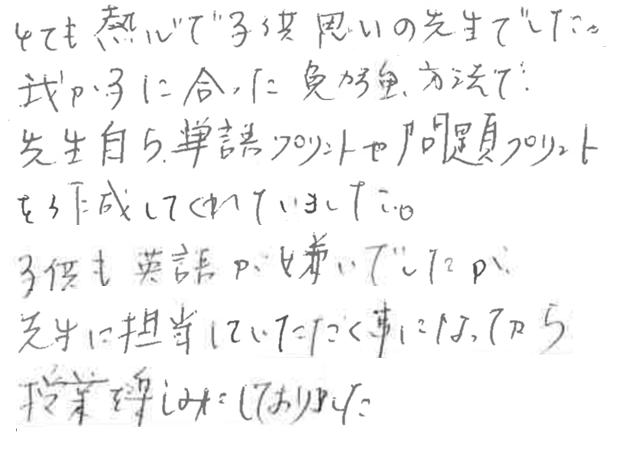 とても熱心で子供思いの先生でした。
我が子に合った勉強方法で
先生自ら単語プリントや問題プリント
を作成してくれていました。
子供も英語が嫌いでしたが、
先生に担当していただく事になってから
授業を楽しみにしておりました